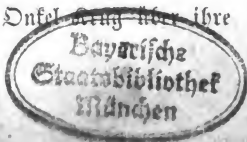 Onkel Krug über ihre
Bayerische
Staatsbibliothek
München